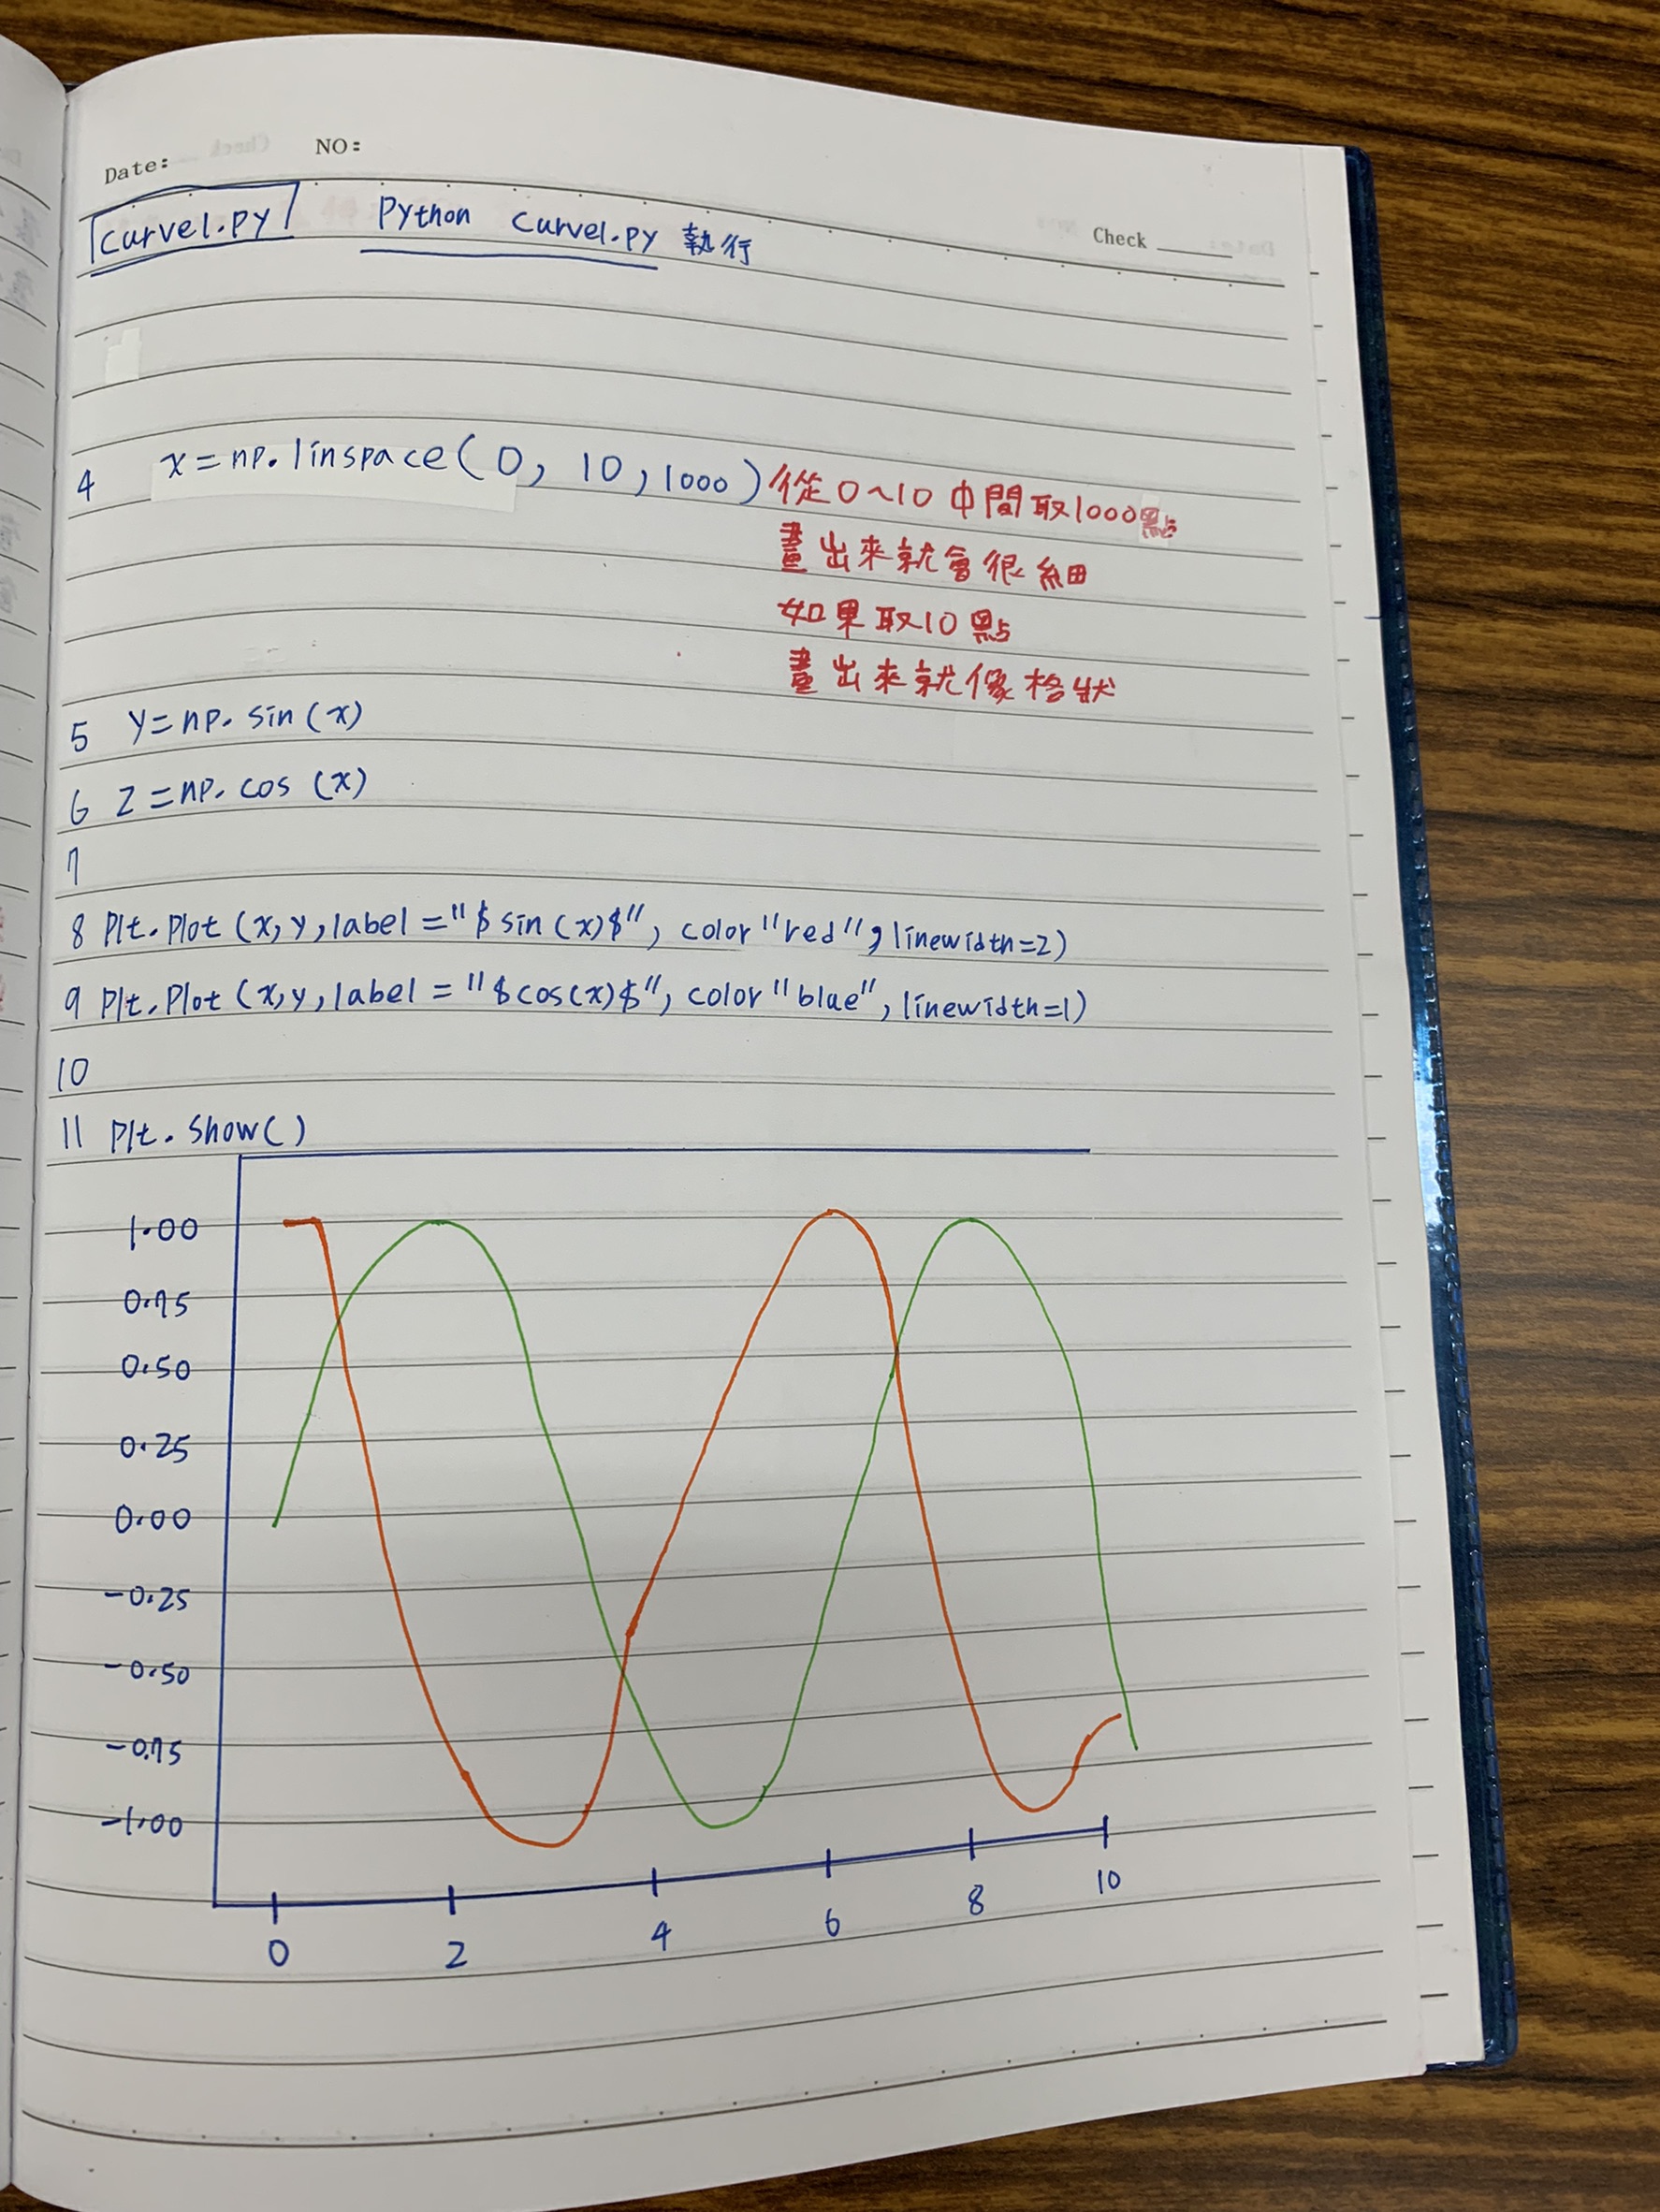 Date: NO:
Check
curve1.py Python curve1.py 執行
4 x=np.linspace(0, 10, 1000) 從0~10中間取1000點
畫出來就會很細
如果取10點
畫出來就像格狀
5 y=np.sin(x)
6 z=np.cos(x)
7
8 Plt.Plot(x,y,label="$sin(x)$", color"red", linewidth=2)
9 Plt.Plot(x,y,label="$cos(x)$", color"blue", linewidth=1)
10
11 Plt.Show()
1.00
0.75
0.50
0.25
0.00
-0.25
-0.50
-0.75
-1.00
0 2 4 6 8 10